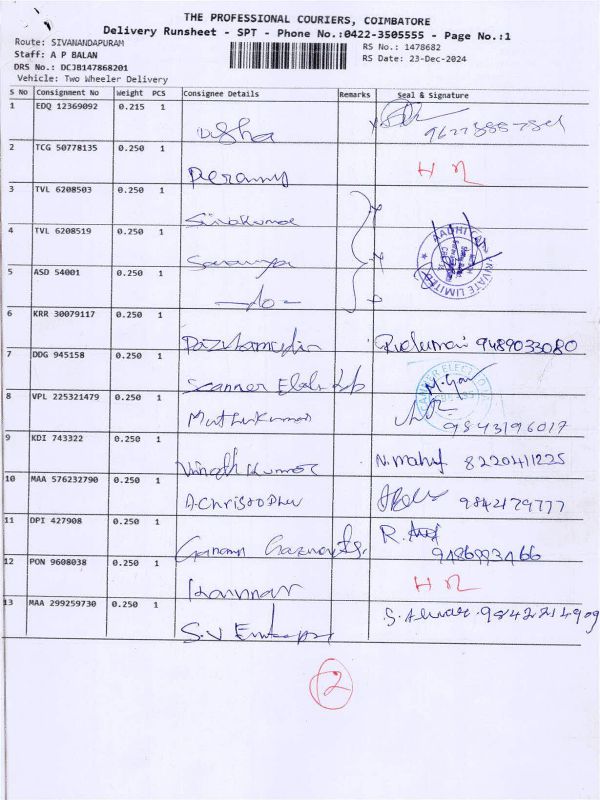 THE PROFESSIONAL COURIERS, COIMBATORE
Delivery Runsheet - SPT - Phone No.:0422-3505555 - Page No.:1
Route: SIVANANDAPURAM
Staff: A P BALAN
DRS No.: DCJB147868201
Vehicle: Two Wheeler Delivery
RS No.: 1478682
RS Date: 23-Dec-2024
S No Consignment No Weight PCS Consignee Details Remarks Seal & Signature
1 EDQ 12369092 0.215 1 Usha
2 TCG 50778135 0.250 1 H
3 TVL 6208503 0.250 1 Sivakumar
4 TVL 6208519 0.250 1 Saranya
PRIVATE LIMITED
5 ASD 54001 0.250 1 -do-
6 KRR 30079117 0.250 1 9489033080
7 DDG 945158 0.250 1 Scanner
8 VPL 225321479 0.250 1 Muthukumar 9843196017
9 KDI 743322 0.250 1 Vinoth Kumar 8220411225
10 MAA 576232790 0.250 1 A.Christopher 9842179777
11 DPI 427908 0.250 1 R.
12 PON 9608038 0.250 1 Kannan H
13 MAA 299259730 0.250 1 S.V
2